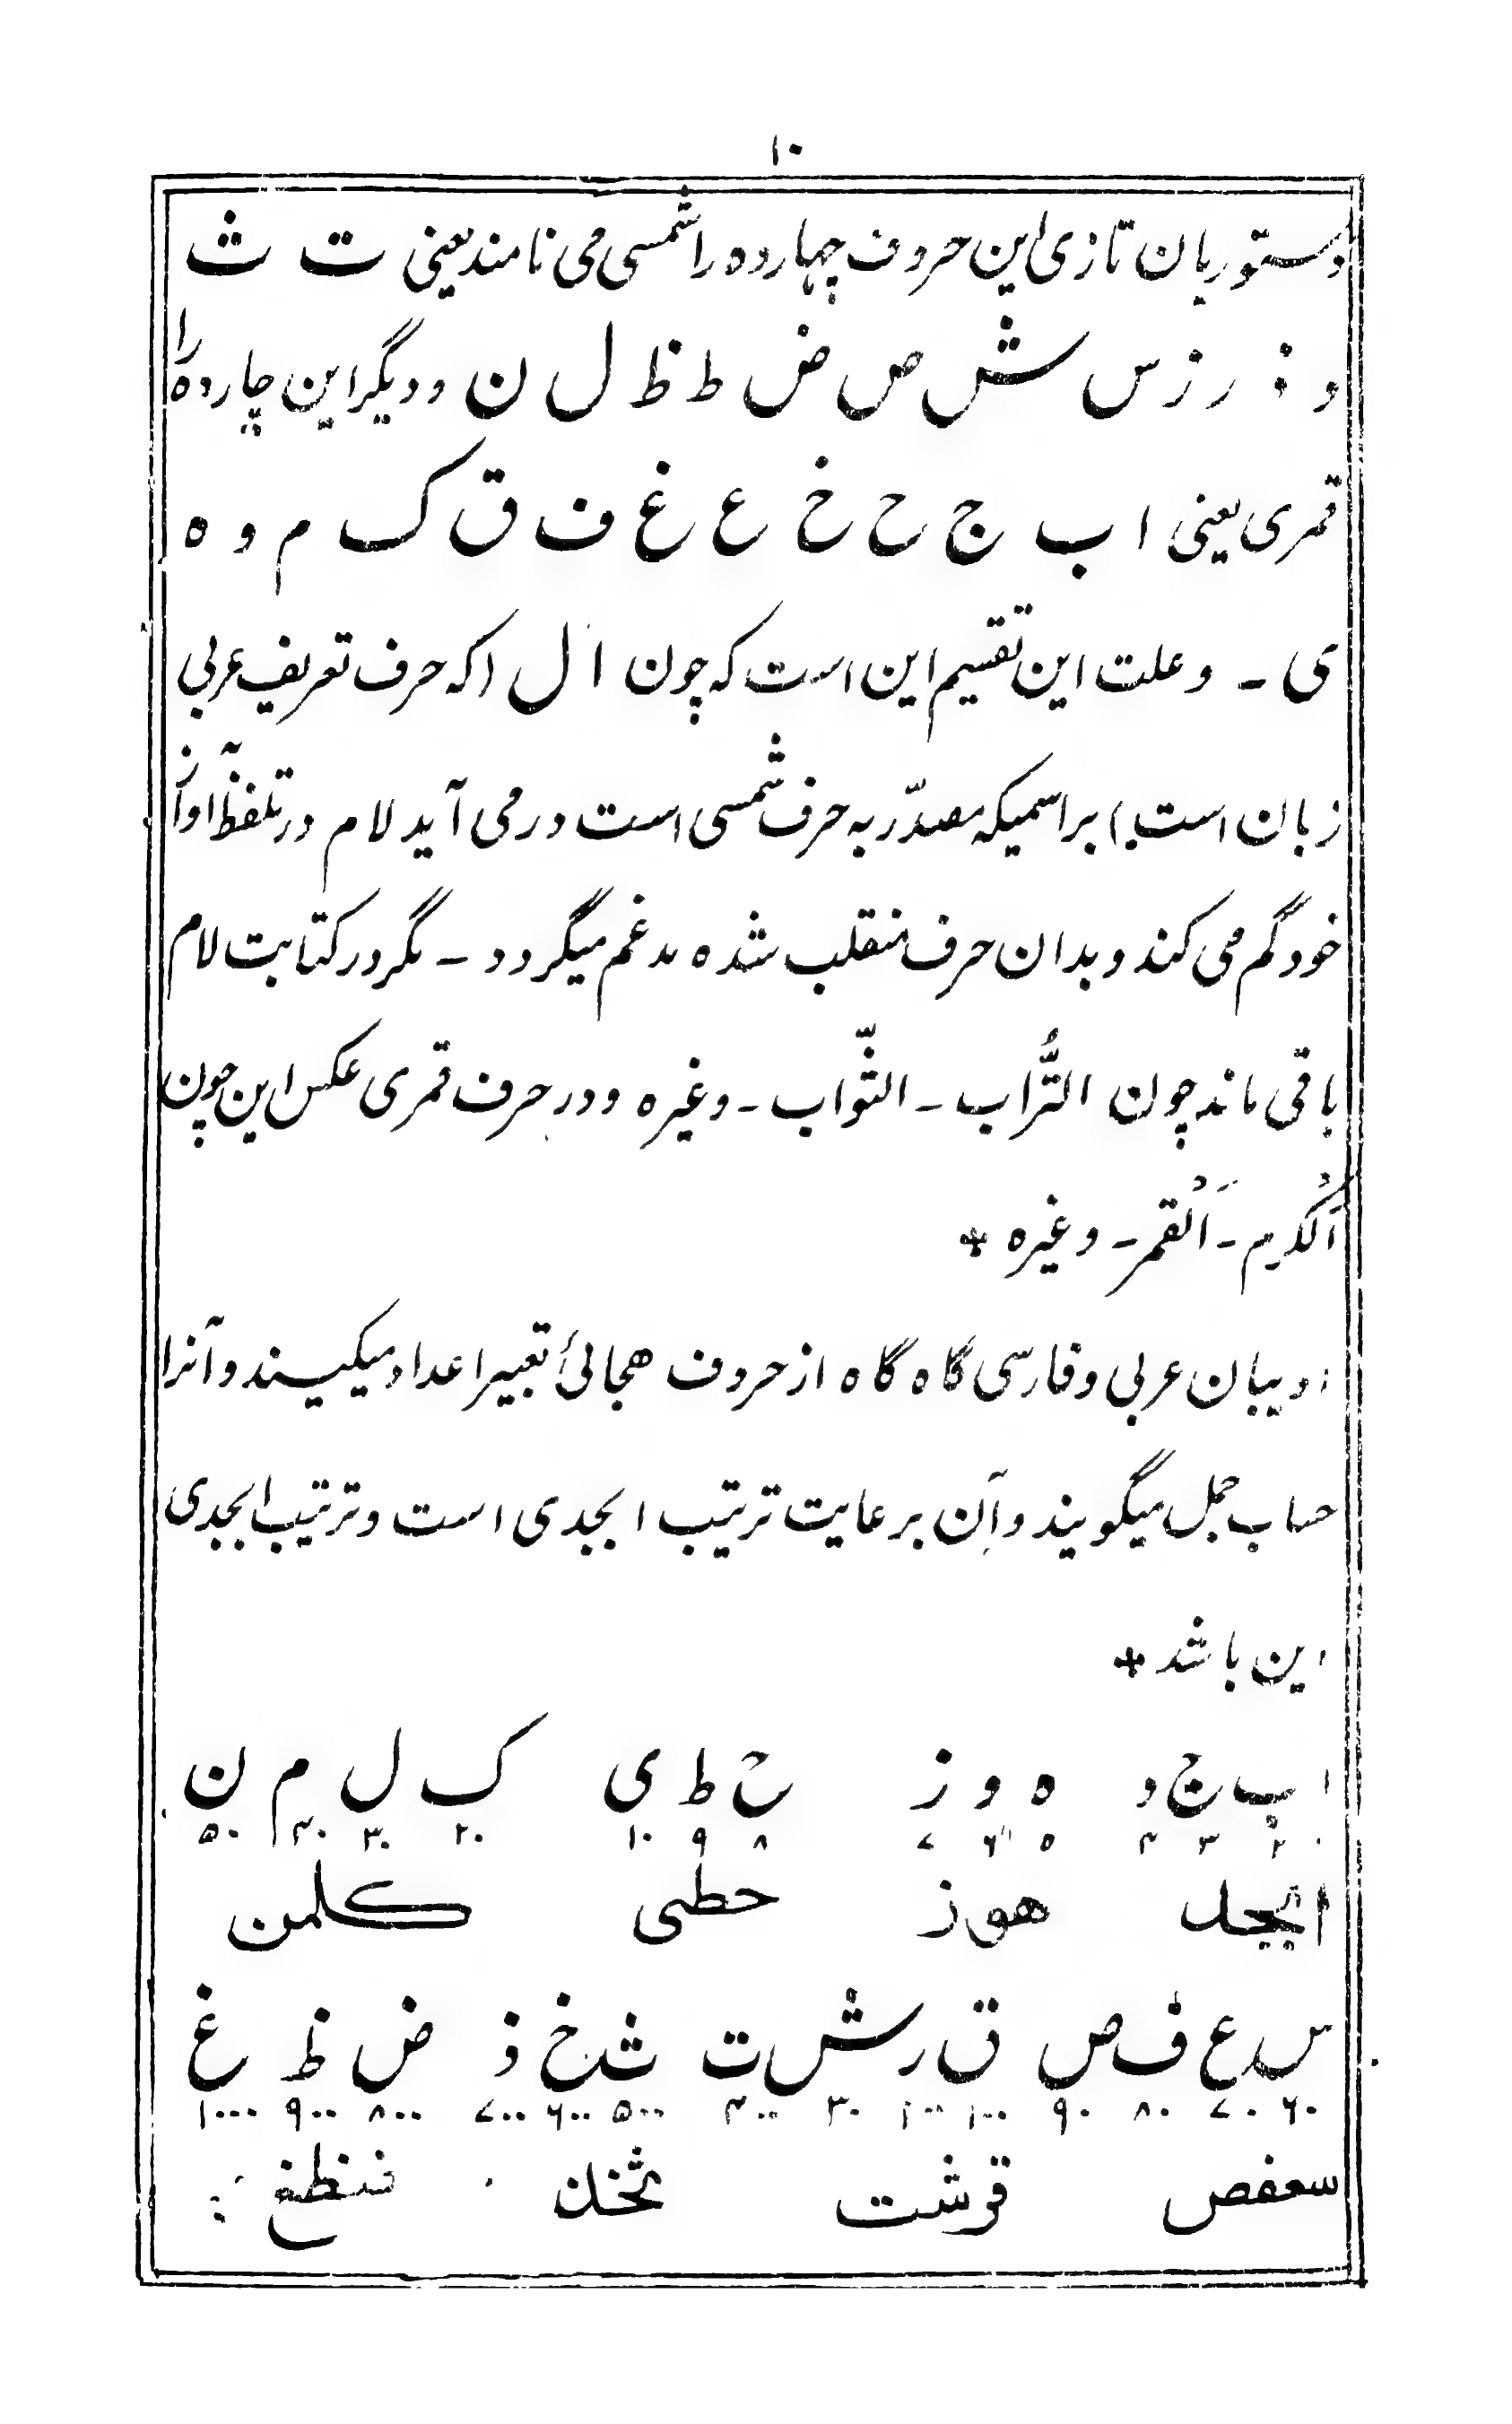 ۱۰
دستوریان تازی این حروف چهارده را شمسی می نامند یعنی ت ث
د ذ ر ز س ش ص ض ط ظ ل ن و دیگر این چارده را
قمری یعنی ا ب ج ح خ ع غ ف ق ک م و ه
ی - و علت این تقسیم این است که چون ال (که حرف تعریف عربی
زبان است) بر اسمیکه مصدّر به حرف شمسی است در می آید لام در تلفّظ آواز
خود گم می کند و بدان حرف منقلب شده مدغم میگردد - مگر در کتابت لام
باقی ماند چون التُّراب - الثّواب - وغیره و در حرف قمری عکس این چون
اَلْکرم - اَلْقمر - وغیره +
ادیبان عربی و فارسی گاه گاه از حروف هجائی تعبیر اعداد میکنند و آنرا
حساب جمل میگویند و آن برعایت ترتیب ابجدی است و ترتیب ابجدی
این باشد +
ا ب ج د ه و ز ح ط ی ک ل م ن
۱ ۲ ۳ ۴ ۵ ۶ ۷ ۸ ۹ ۱۰ ۲۰ ۳۰ ۴۰ ۵۰
ابجد هوز حطی کلمن
س ع ف ص ق ر ش ت ث خ ذ ض ظ غ
۶۰ ۷۰ ۸۰ ۹۰ ۱۰۰ ۲۰۰ ۳۰ ۴۰۰ ۵۰۰ ۶۰۰ ۷۰۰ ۸۰۰ ۹۰۰ ۱۰۰۰
سعفص قرشت ثخذ ضظغ